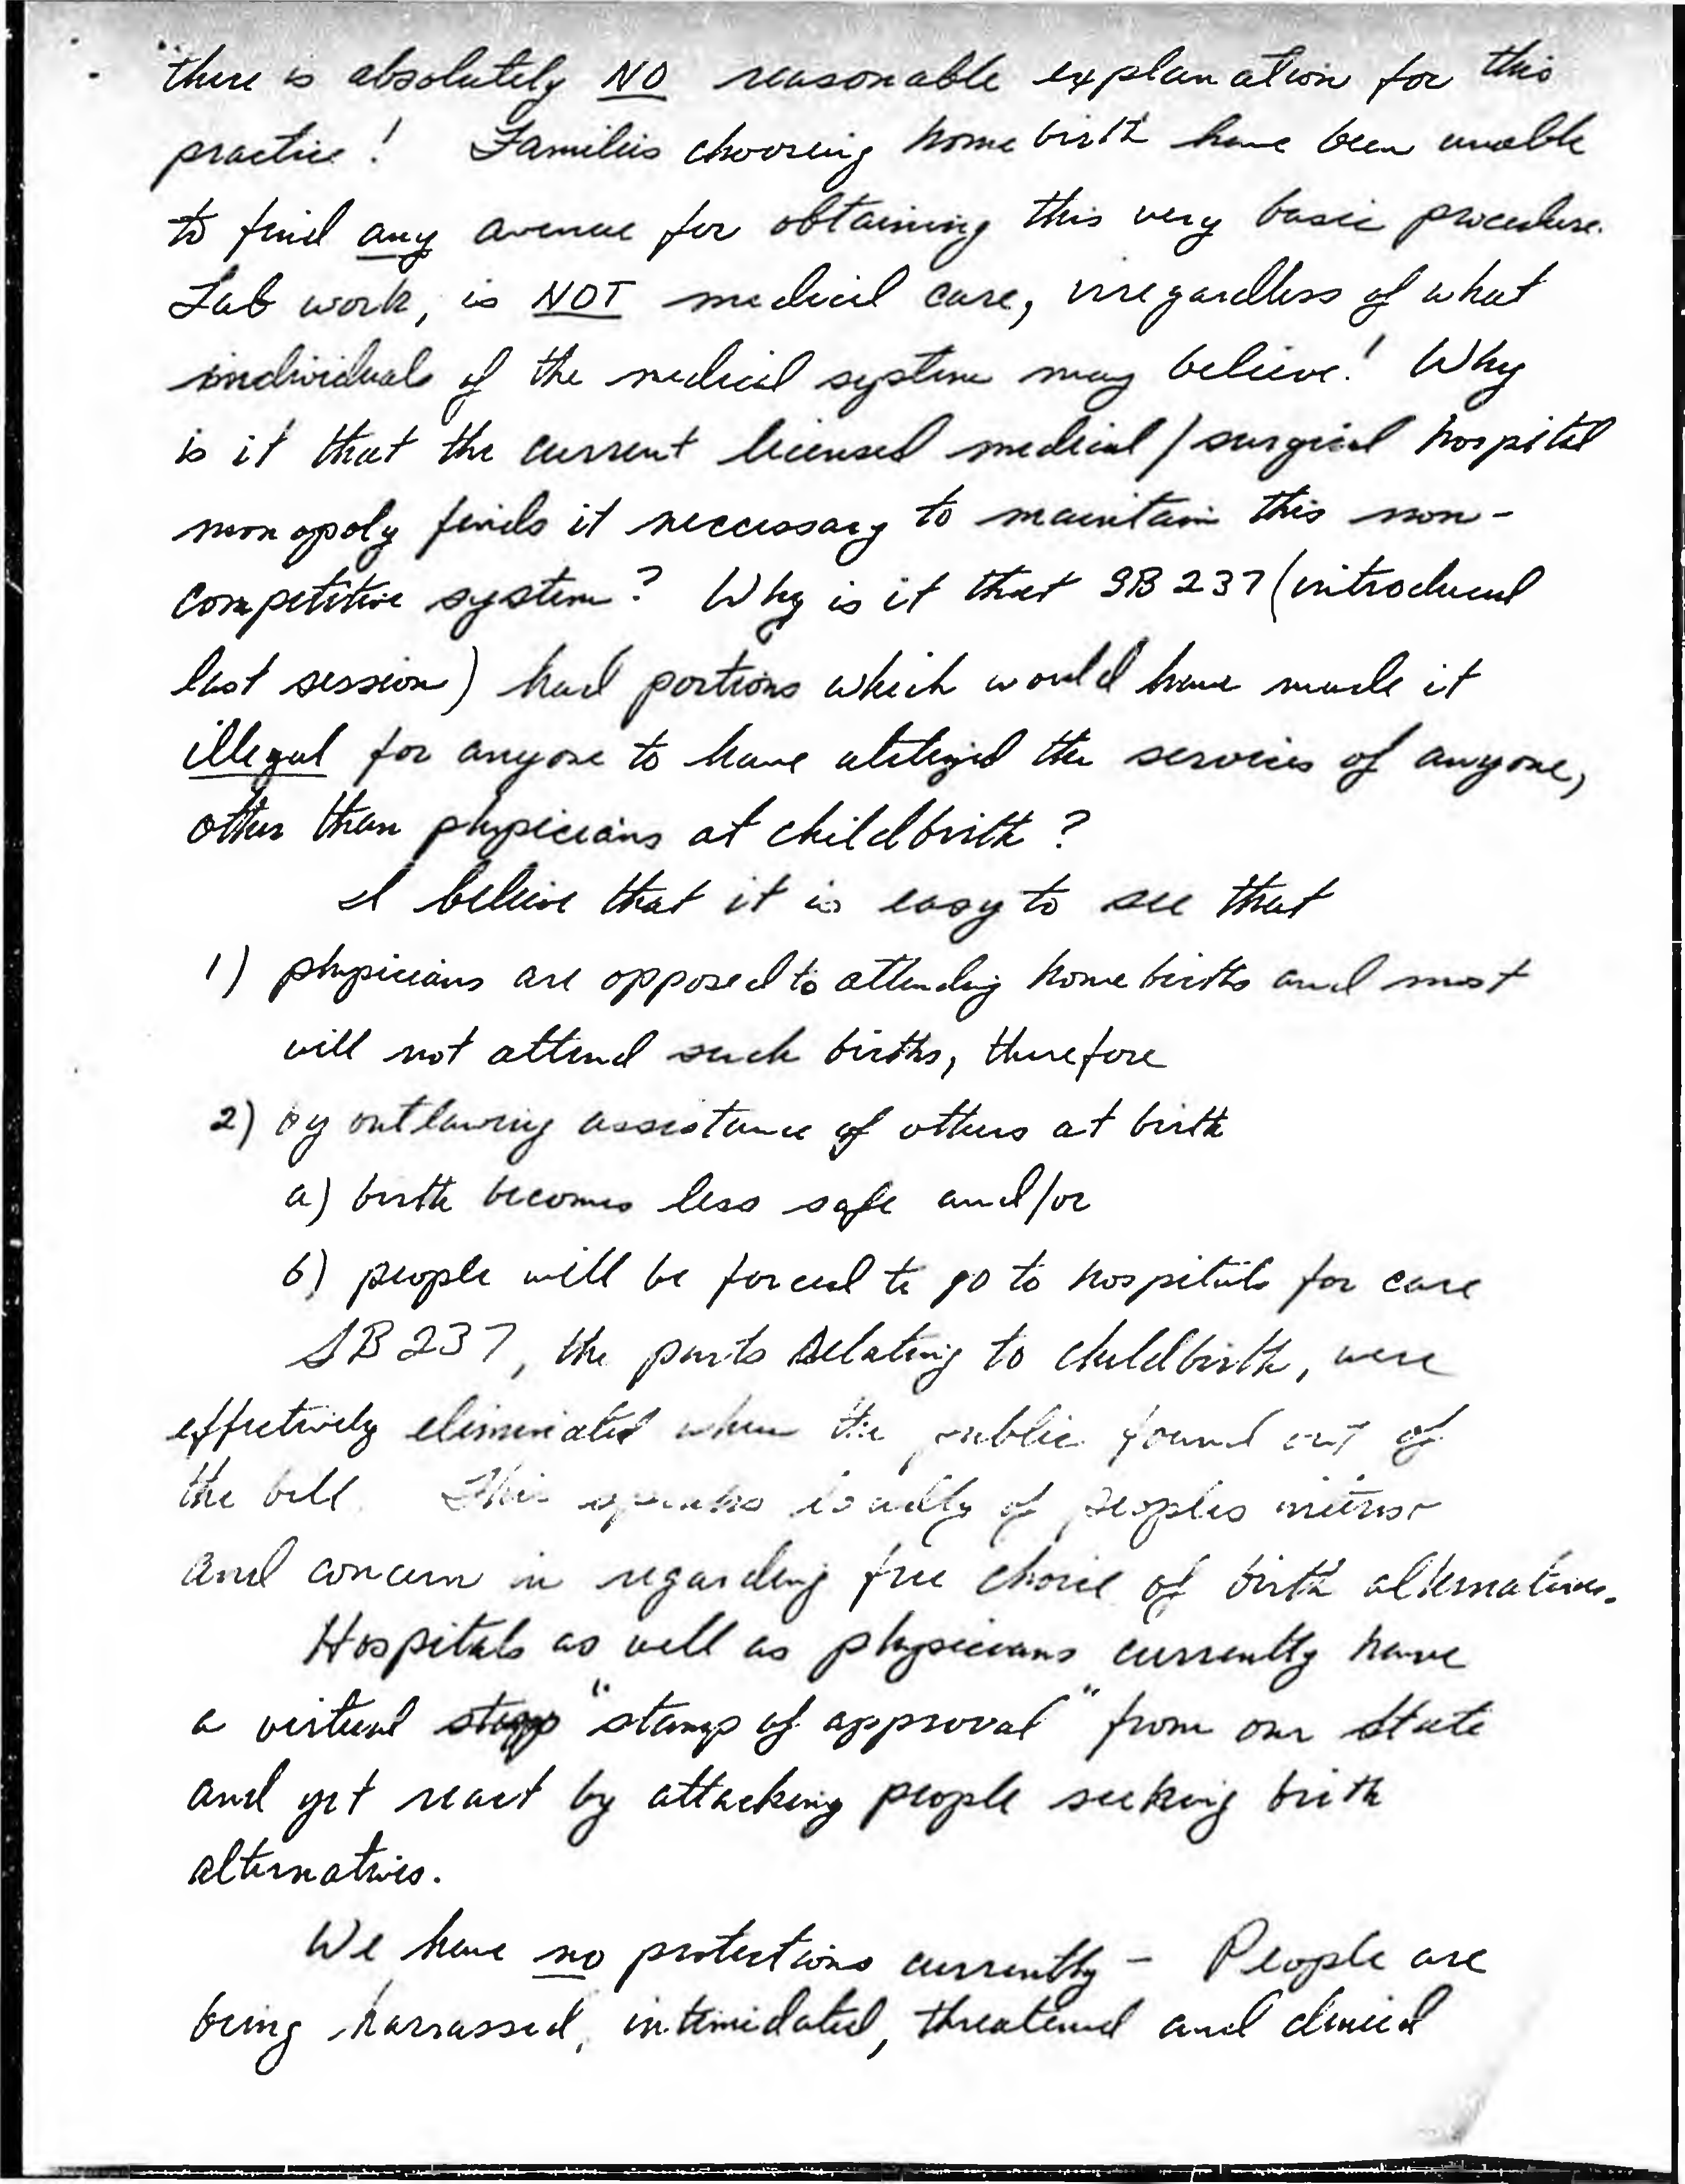 there is absolutely NO reasonable explanation for this
practice! Families choosing home birth have been unable
to find any avenue for obtaining this very basic procedure.
Lab work, is NOT medical care, irregardless of what
individuals of the medical system may believe! Why
is it that the current licensed medical/surgical hospital
monopoly finds it neccessary to maintain this non-
competitive system? Why is it that SB 237 (introduced
last session) had portions which would have made it
illegal for anyone to have utilized the services of anyone,
other than physicians at childbirth?
I believe that it is easy to see that
1) physicians are opposed to attending home births and most
will not attend such births, therefore
2) by outlawing assistance of others at birth
a) birth becomes less safe and/or
b) people will be forced to go to hospitals for care
SB 237, the parts relating to childbirth, were
effectively eliminated when the public found out of
the bill. This speaks loudly of peoples interest
and concern in regarding free choice of birth alternatives.
Hospitals as well as physicians currently have
a virtual "stamp of approval" from our State
and yet react by attacking people seeking birth
alternatives.
We have no protections currently - People are
being harrassed, intimidated, threatened and denied